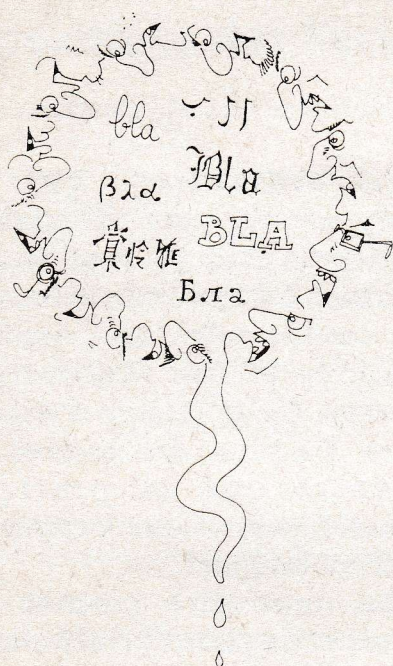 bla
βλα
Bla
BLA
Бла